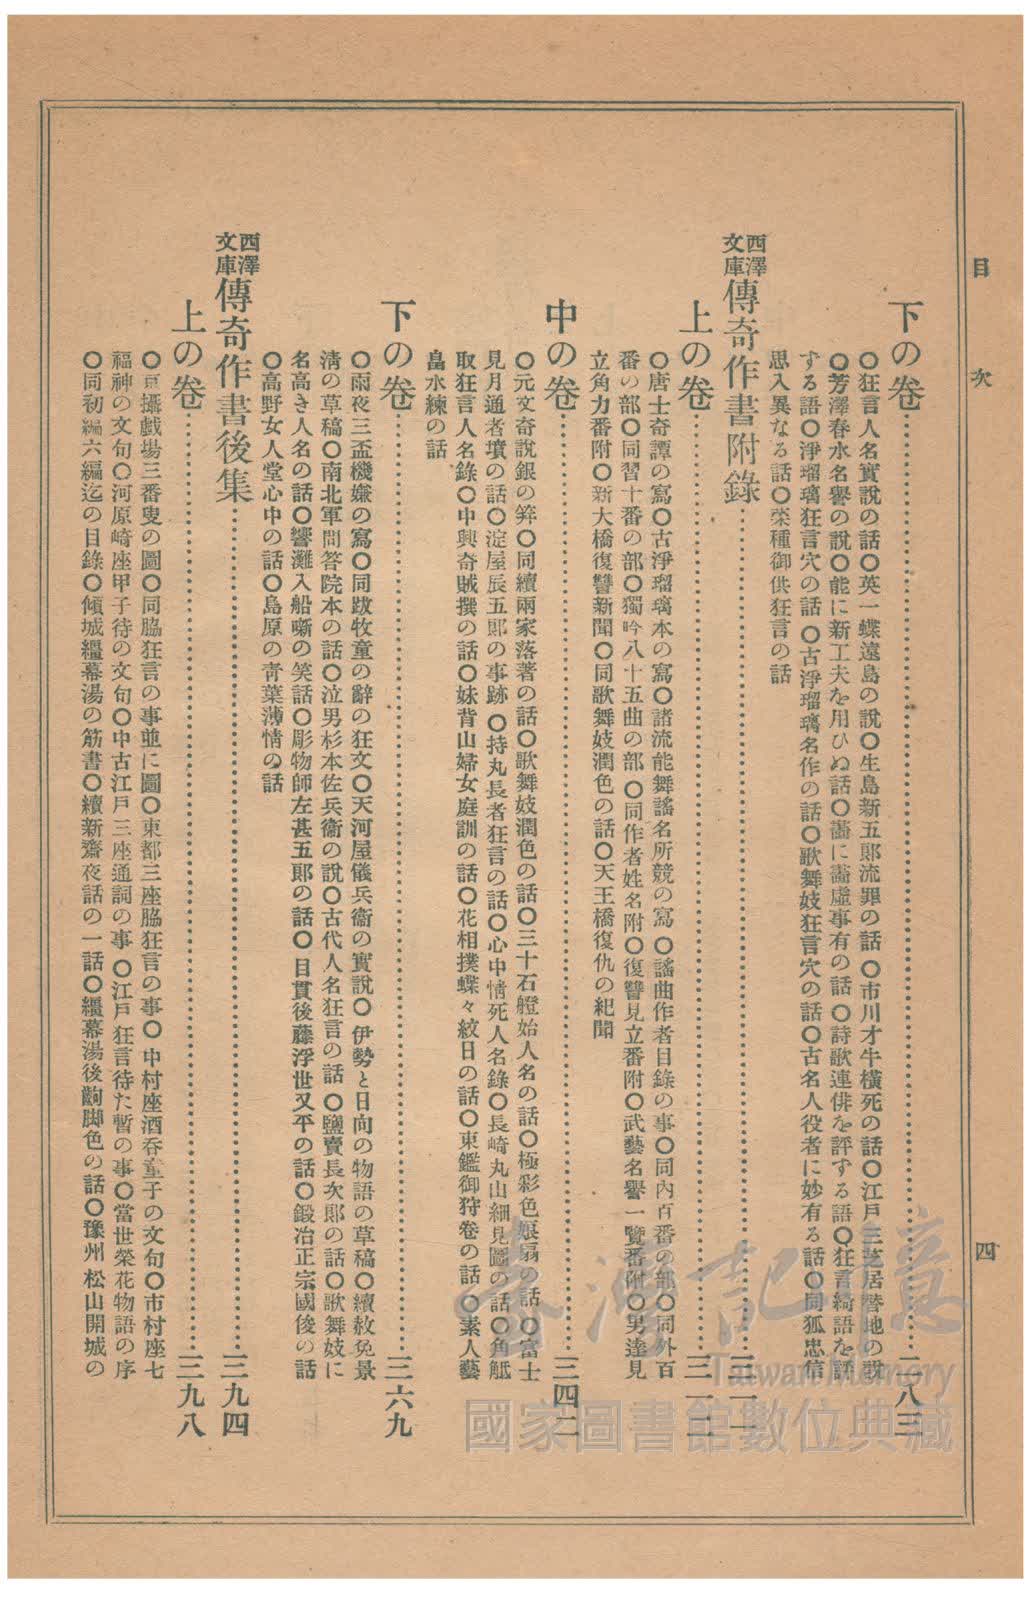 目次
四
下の卷……二八三
〇狂言人名實說の話〇英一蝶遠島の說〇生島新五郞流罪の話〇市川才牛橫死の話〇江戶三芝居替地の說
〇芳澤春水名譽の說〇能に新工夫を用ひぬ話〇畵に畵虛事有の話〇詩歌連俳を評する語〇狂言綺語を評
する語〇淨瑠璃狂言穴の話〇古淨瑠璃名作の話〇歌舞妓狂言穴の話〇古名人役者に妙有る話〇同狐忠信
思入異なる話〇菜種御供狂言の話
西澤文庫傳奇作書附錄……三一一
上の卷……三一二
〇唐士奇譚の寫〇古淨瑠璃本の寫〇諸流能舞謠名所競の寫〇謠曲作者目錄の事〇同內百番の部〇同外百
番の部〇同習十番の部〇獨吟八十五曲の部〇同作者姓名附〇復讐見立番附〇武藝名譽一覽番附〇男達見
立角力番附〇新大橋復讐新聞〇同歌舞妓潤色の話〇天王橋復仇の紀聞
中の卷……三四二
〇元文奇說銀の笄〇同續兩家落著の話〇歌舞妓潤色の話〇三十石艠始人名の話〇極彩色娘扇の話〇富士
見月通者墳の話〇淀屋辰五郞の事跡〇持丸長者狂言の話〇心中情死人名錄〇長崎丸山細見圖の話〇角觝
取狂言人名錄〇中興奇賊撰の話〇妹背山婦女庭訓の話〇花相撲蝶々紋日の話〇東鑑御狩卷の話〇素人藝
畠水練の話
下の卷……三六九
〇雨夜三盃機嫌の寫〇同跋牧童の辭の狂文〇天河屋儀兵衞の實說〇伊勢と日向の物語の草稿〇續赦免景
淸の草稿〇南北軍問答院本の話〇泣男杉本佐兵衞の說〇古代人名狂言の話〇鹽賣長次郞の話〇歌舞妓に
名高き人名の話〇響灘入船噺の笑話〇彫物師左甚五郞の話〇目貫後藤浮世又平の話〇鍛冶正宗國俊の話
〇高野女人堂心中の話〇島原の靑葉薄情の話
西澤文庫傳奇作書後集……三九四
上の卷……三九八
〇豆攝戲場三番叟の圖〇同脇狂言の事並に圖〇東都三座脇狂言の事〇中村座酒呑童子の文句〇市村座七
福神の文句〇河原崎座甲子待の文句〇中古江戶三座通詞の事〇江戶狂言待た暫の事〇當世榮花物語の序
〇同初編六編迄の目錄〇傾城繮幕湯の筋書〇續新齋夜話の一話〇繮幕湯後齣脚色の話〇豫州松山開城の
臺灣記憶
Taiwan Memory
國家圖書館數位典藏